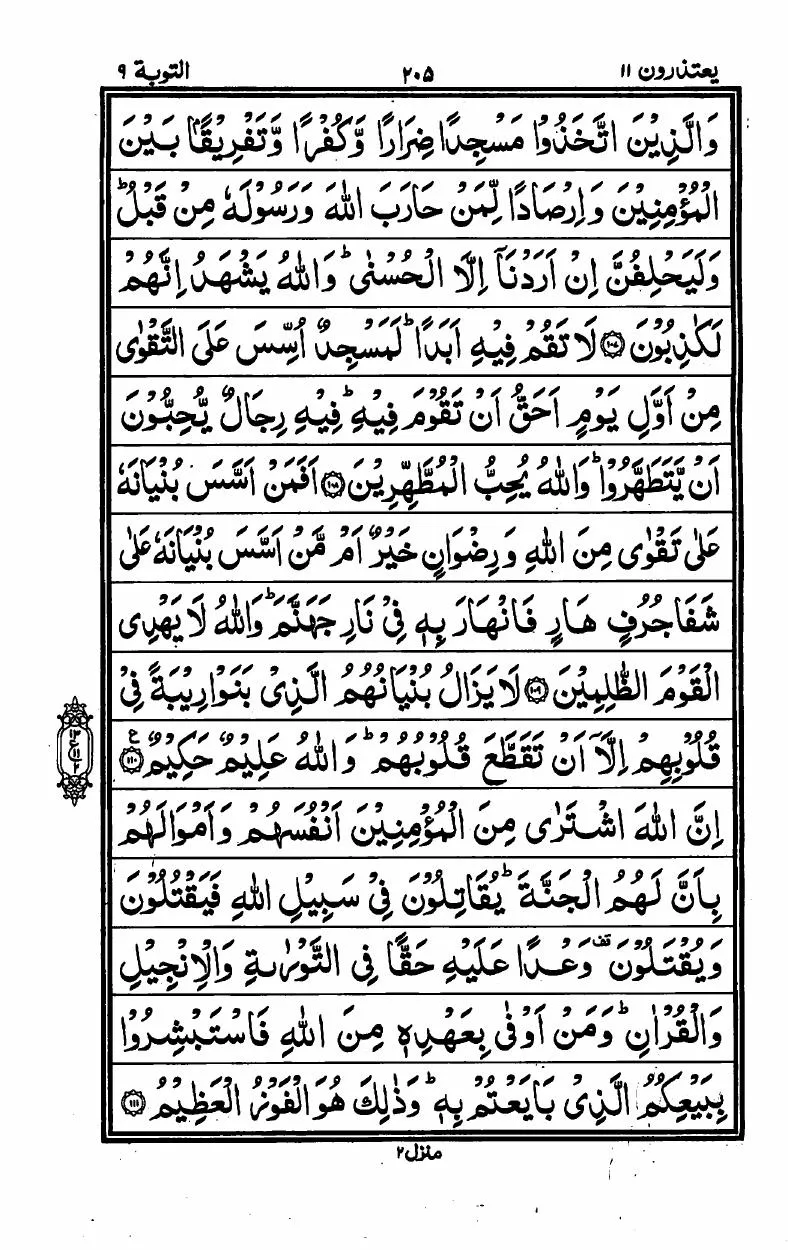 يعتذرون ۱۱
۲۰۵
التوبة ۹
وَالَّذِيْنَ اتَّخَذُوْا مَسْجِدًا ضِرَارًا وَّكُفْرًا وَّتَفْرِيْقًۢا بَيْنَ
الْمُؤْمِنِيْنَ وَاِرْصَادًا لِّمَنْ حَارَبَ اللّٰهَ وَرَسُوْلَهٗ مِنْ قَبْلُ ؕ
وَلَيَحْلِفُنَّ اِنْ اَرَدْنَاۤ اِلَّا الْحُسْنٰى ؕ وَاللّٰهُ يَشْهَدُ اِنَّهُمْ
لَكٰذِبُوْنَ ﴿۱۰۷﴾ لَا تَقُمْ فِيْهِ اَبَدًا ؕ لَمَسْجِدٌ اُسِّسَ عَلَى التَّقْوٰى
مِنْ اَوَّلِ يَوْمٍ اَحَقُّ اَنْ تَقُوْمَ فِيْهِ ؕ فِيْهِ رِجَالٌ يُّحِبُّوْنَ
اَنْ يَّتَطَهَّرُوْا ؕ وَاللّٰهُ يُحِبُّ الْمُطَّهِّرِيْنَ ﴿۱۰۸﴾ اَفَمَنْ اَسَّسَ بُنْيَانَهٗ
عَلٰى تَقْوٰى مِنَ اللّٰهِ وَرِضْوَانٍ خَيْرٌ اَمْ مَّنْ اَسَّسَ بُنْيَانَهٗ عَلٰى
شَفَا جُرُفٍ هَارٍ فَانْهَارَ بِهٖ فِيْ نَارِ جَهَنَّمَ ؕ وَاللّٰهُ لَا يَهْدِى
الْقَوْمَ الظّٰلِمِيْنَ ﴿۱۰۹﴾ لَا يَزَالُ بُنْيَانُهُمُ الَّذِيْ بَنَوْا رِيْبَةً فِيْ
قُلُوْبِهِمْ اِلَّاۤ اَنْ تَقَطَّعَ قُلُوْبُهُمْ ؕ وَاللّٰهُ عَلِيْمٌ حَكِيْمٌ ﴿۱۱۰﴾ ع
اِنَّ اللّٰهَ اشْتَرٰى مِنَ الْمُؤْمِنِيْنَ اَنْفُسَهُمْ وَاَمْوَالَهُمْ
بِاَنَّ لَهُمُ الْجَنَّةَ ؕ يُقَاتِلُوْنَ فِيْ سَبِيْلِ اللّٰهِ فَيَقْتُلُوْنَ
وَيُقْتَلُوْنَ قف وَعْدًا عَلَيْهِ حَقًّا فِي التَّوْرٰىةِ وَالْاِنْجِيْلِ
وَالْقُرْاٰنِ ؕ وَمَنْ اَوْفٰى بِعَهْدِهٖ مِنَ اللّٰهِ فَاسْتَبْشِرُوْا
بِبَيْعِكُمُ الَّذِيْ بَايَعْتُمْ بِهٖ ؕ وَذٰلِكَ هُوَ الْفَوْزُ الْعَظِيْمُ ﴿۱۱۱﴾
منزل ۲